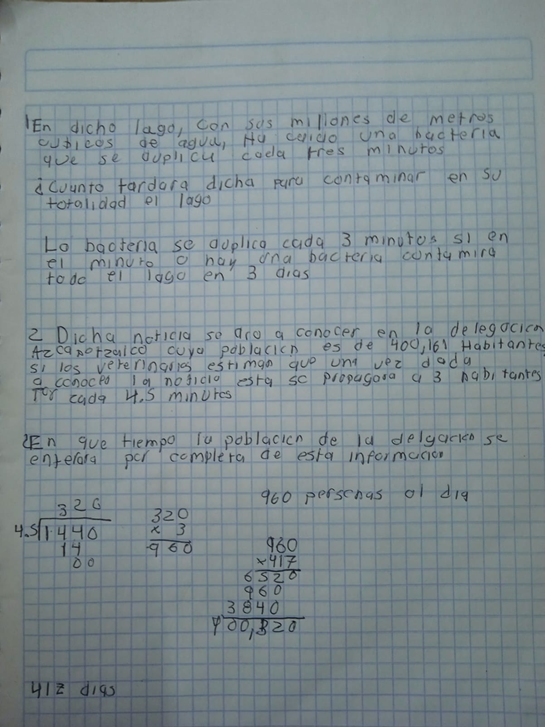 1En dicho lago, con sus millones de metros
cubicos de agua, Ha caido una bacteria
que se duplica cada tres minutos
¿Cuanto tardara dicha para contaminar en su
totalidad el lago
La bacteria se duplica cada 3 minutos si en
el minuto 0 hay una bacteria contamira
todo el lago en 3 dias
2 Dicha noticia se dio a conocer en la delegacion
Azcapotzalco cuya poblacion es de 400,161 Habitantes
si los veterinarios estiman que una vez dada
a conocer la noticia esta se propagara a 3 habitantes
Por cada 4.5 minutos
¿En que tiempo la poblacion de la delgacion se
enterara por completa de esta informacion
960 personas al dia
320
4.5 1440
14
00
320
x 3
960
960
x417
6520
960
3840
400,320
412 dias